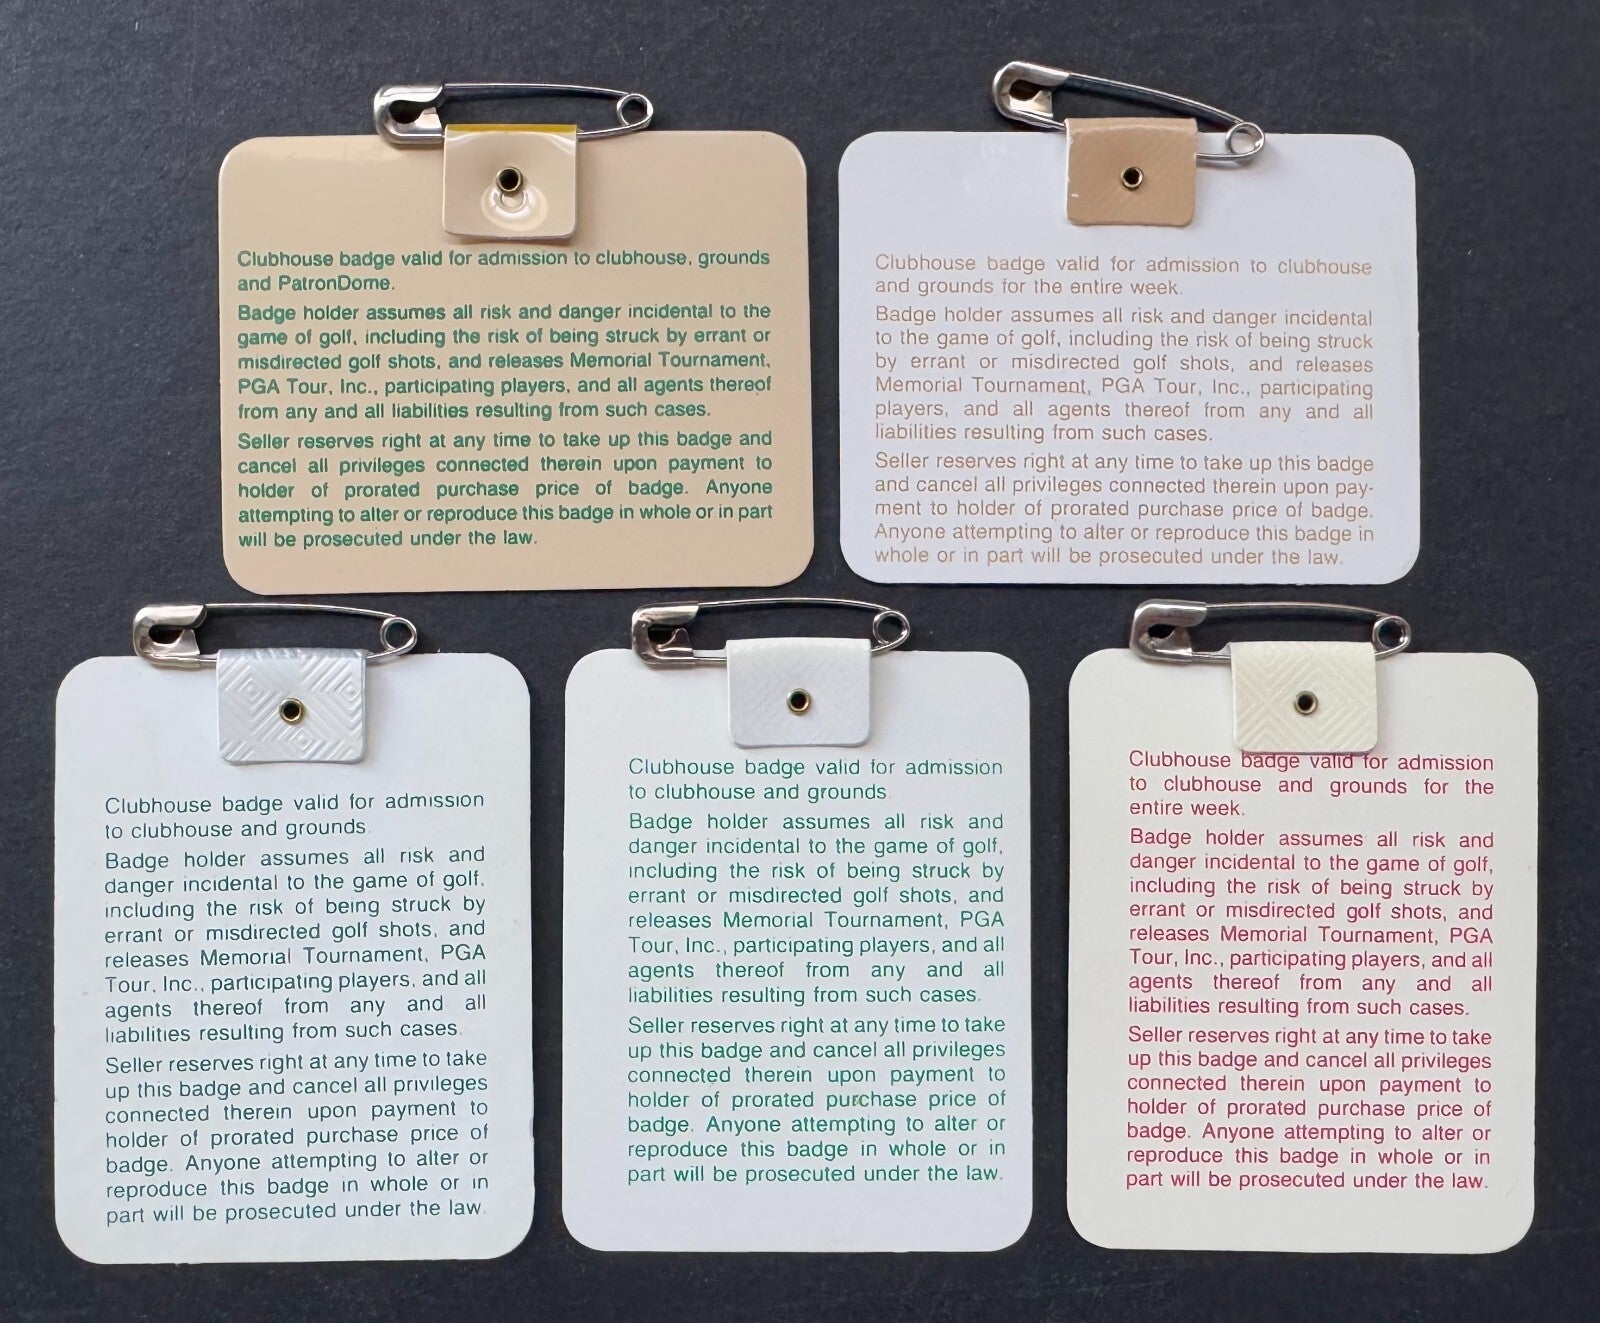 Clubhouse badge valid for admission to clubhouse, grounds
and PatronDome.
Badge holder assumes all risk and danger incidental to the
game of golf, including the risk of being struck by errant or
misdirected golf shots, and releases Memorial Tournament,
PGA Tour, Inc., participating players, and all agents thereof
from any and all liabilities resulting from such cases.
Seller reserves right at any time to take up this badge and
cancel all privileges connected therein upon payment to
holder of prorated purchase price of badge. Anyone
attempting to alter or reproduce this badge in whole or in part
will be prosecuted under the law.
Clubhouse badge valid for admission to clubhouse
and grounds for the entire week.
Badge holder assumes all risk and danger incidental
to the game of golf, including the risk of being struck
by errant or misdirected golf shots, and releases
Memorial Tournament, PGA Tour, Inc., participating
players, and all agents thereof from any and all
liabilities resulting from such cases.
Seller reserves right at any time to take up this badge
and cancel all privileges connected therein upon pay-
ment to holder of prorated purchase price of badge.
Anyone attempting to alter or reproduce this badge in
whole or in part will be prosecuted under the law.
Clubhouse badge valid for admission
to clubhouse and grounds.
Badge holder assumes all risk and
danger incidental to the game of golf,
including the risk of being struck by
errant or misdirected golf shots, and
releases Memorial Tournament, PGA
Tour, Inc., participating players, and all
agents thereof from any and all
liabilities resulting from such cases.
Seller reserves right at any time to take
up this badge and cancel all privileges
connected therein upon payment to
holder of prorated purchase price of
badge. Anyone attempting to alter or
reproduce this badge in whole or in
part will be prosecuted under the law.
Clubhouse badge valid for admission
to clubhouse and grounds.
Badge holder assumes all risk and
danger incidental to the game of golf,
including the risk of being struck by
errant or misdirected golf shots, and
releases Memorial Tournament, PGA
Tour, Inc., participating players, and all
agents thereof from any and all
liabilities resulting from such cases.
Seller reserves right at any time to take
up this badge and cancel all privileges
connected therein upon payment to
holder of prorated purchase price of
badge. Anyone attempting to alter or
reproduce this badge in whole or in
part will be prosecuted under the law.
Clubhouse badge valid for admission
to clubhouse and grounds for the
entire week.
Badge holder assumes all risk and
danger incidental to the game of golf,
including the risk of being struck by
errant or misdirected golf shots, and
releases Memorial Tournament, PGA
Tour, Inc., participating players, and all
agents thereof from any and all
liabilities resulting from such cases.
Seller reserves right at any time to take
up this badge and cancel all privileges
connected therein upon payment to
holder of prorated purchase price of
badge. Anyone attempting to alter or
reproduce this badge in whole or in
part will be prosecuted under the law.